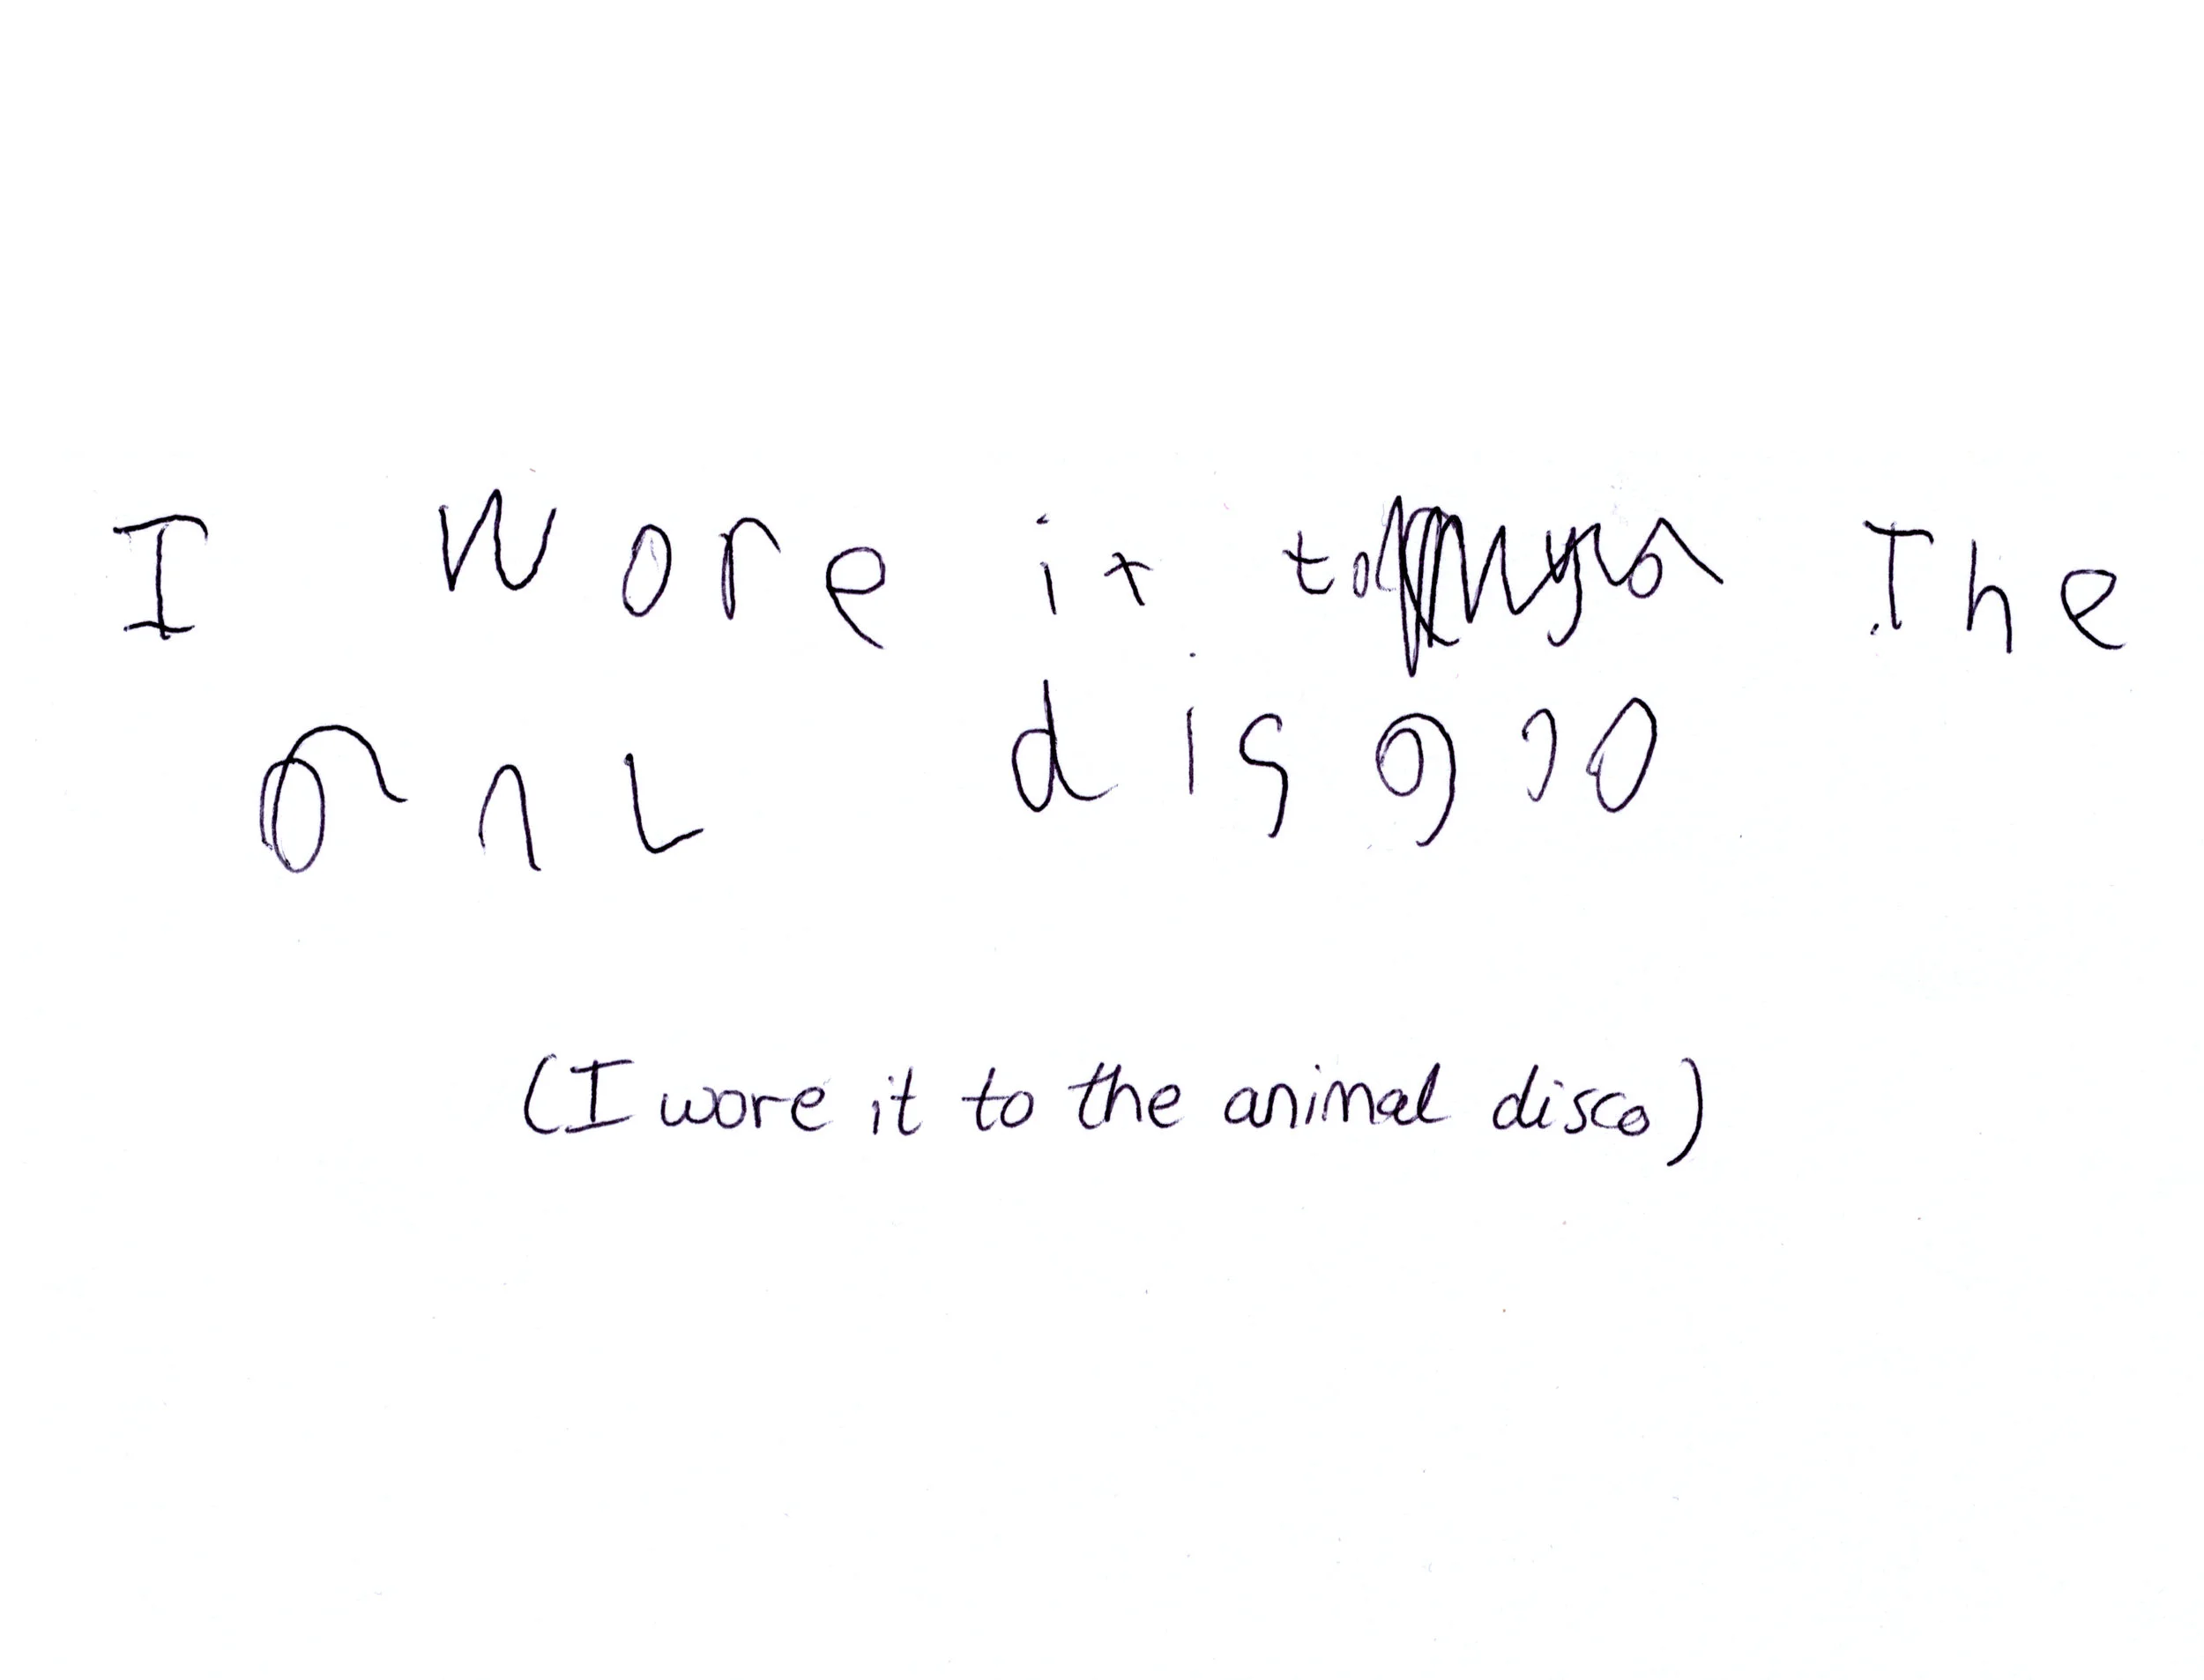 I wore it to The
anl disgo
(I wore it to the animal disco)